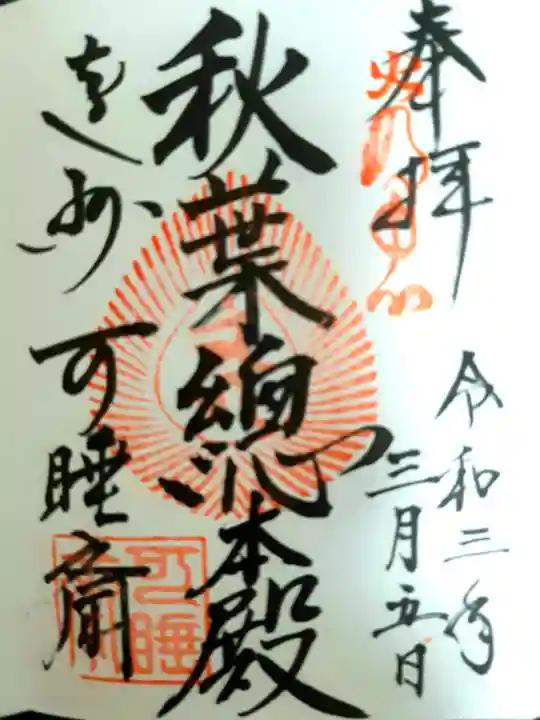 奉拝
令和三年
三月五日
秋葉總本殿
遠州
可睡斎
可睡